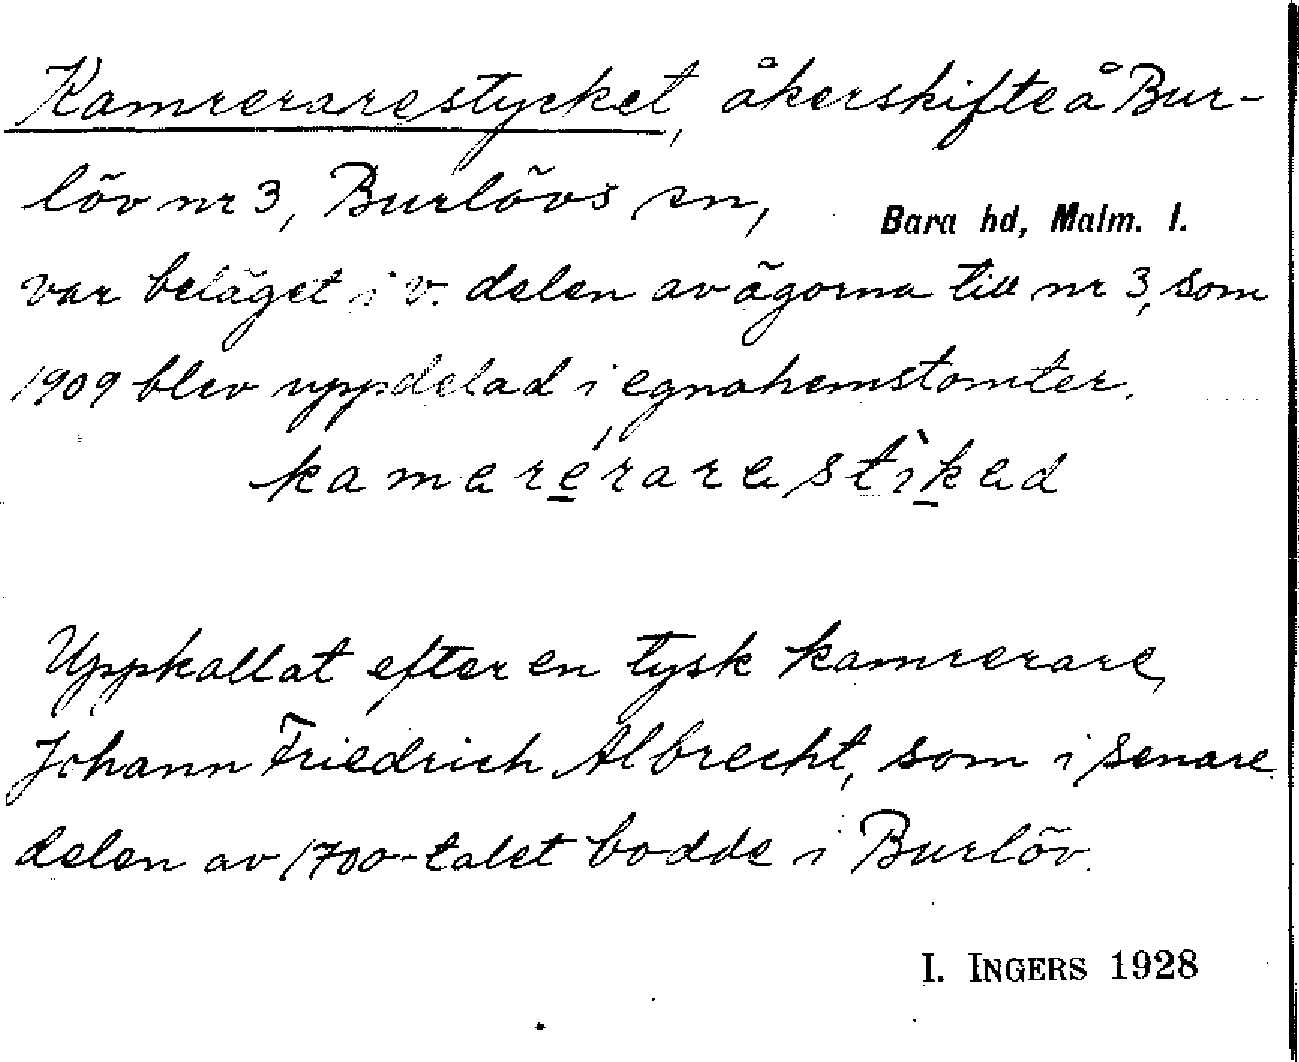 Kamrerarestycket, åkerskifte å Bur-
löv nr 3, Burlövs sn, Bara hd, Malm. l.
var beläget i v. delen av ägorna till nr 3, som
1909 blev uppdelad i egnahemstomter.
kamerérarestìked
Uppkallat efter en tysk kamrerare,
Johann Friedrich Albrecht, som i senare
delen av 1700-talet bodde i Burlöv.
I. INGERS 1928